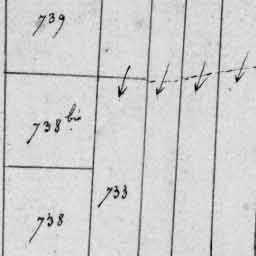 739
738 bis
733
738